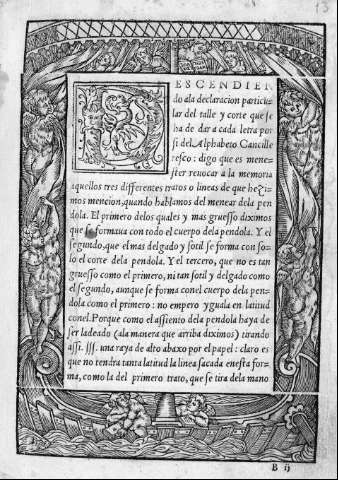 13
DESCENDIEN
do ala declaracion particu
lar del talle y corte que se
ha de dar a cada letra por
si del Alphabeto Cancille
resco: digo que es mene-
ster revocar a la memoria
aquellos tres differentes tratos o lineas de que hezi
mos mencion, quando hablamos del menear dela pen
dola. El primero delos quales y mas gruesso diximos
que se formava con todo el cuerpo dela pendola. Y el
segundo, que el mas delgado y sotil se forma con so-
lo el corte dela pendola. Y el tercero, que no es tan
gruesso como el primero, ni tan sotil y delgado como
el segundo, aunque se forma conel cuerpo dela pen-
dola como el primero: no empero yguala en latitud
conel. Porque como el assiento dela pendola haya de
ser ladeado (ala manera que arriba diximos) tirando
assi. ///. una raya de alto abaxo por el papel: claro es
que no tendra tanta latitud la linea sacada enesta for-
ma, como la del primero trato, que se tira dela mano
B ij